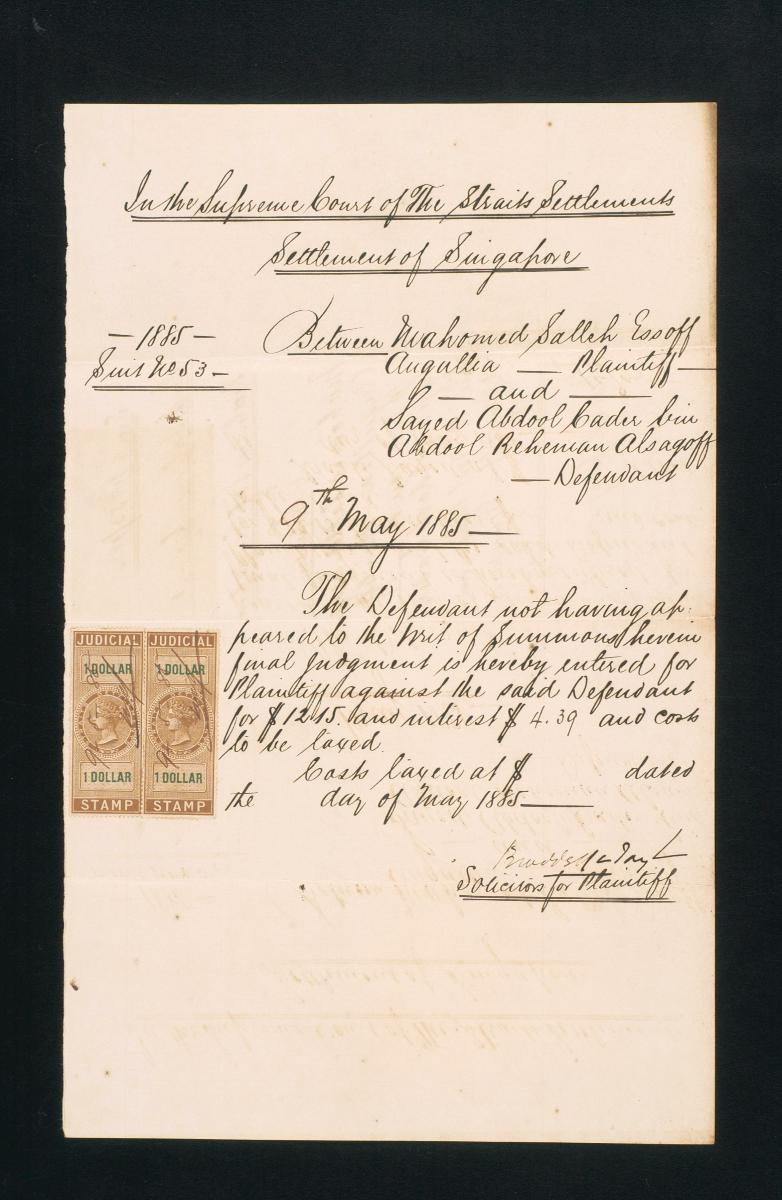 In the Supreme Court of The Straits Settlements
Settlement of Singapore
— 1885 —
Suit No 53 —
Between Mahomed Salleh Essoff
Angullia — Plaintiff —
— and —
Sayed Abdool Cader bin
Abdool Reheman Alsagoff
— Defendant
9th May 1885 —
The Defendant not having ap-
peared to the Writ of Summons herein
final Judgment is hereby entered for
Plaintiff against the said Defendant
for $1215 and interest $ 4.39 and costs
to be taxed.
Costs taxed at $ dated
the day of May 1885 —
Solicitors for Plaintiff
JUDICIAL JUDICIAL
1 DOLLAR 1 DOLLAR
1 DOLLAR 1 DOLLAR
STAMP STAMP